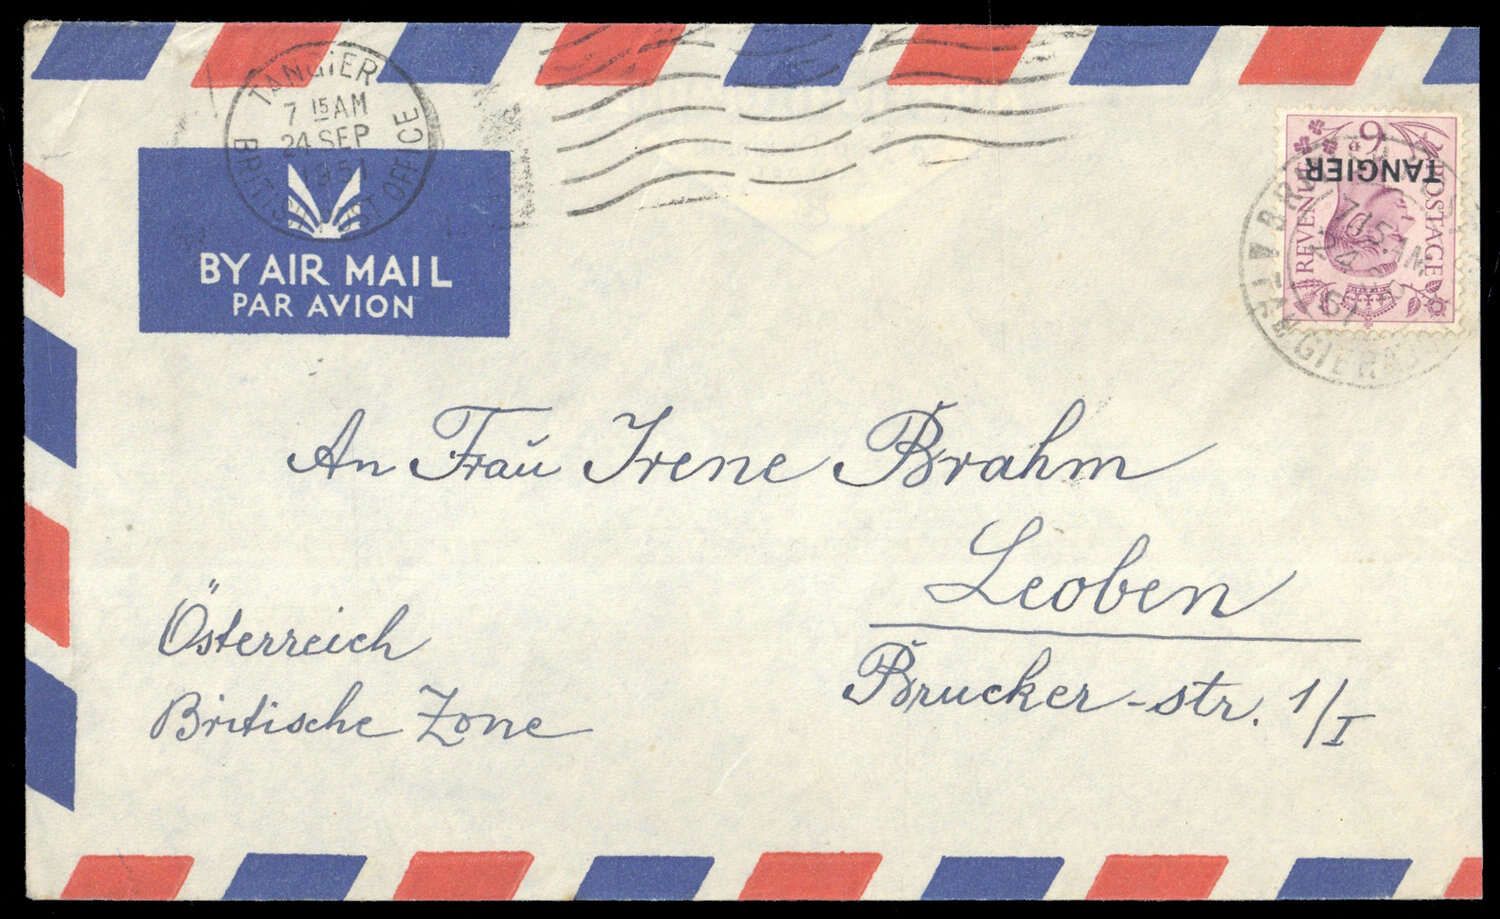 TANGIER
7 15 AM
24 SEP
1951
BRITISH POST OFFICE
BY AIR MAIL
PAR AVION
6D
TANGIER
REVENUE
POSTAGE
7 15 AM
24
51
TANGIER
An Frau Irene Brahm
Leoben
Brucker-str. 1/I
Österreich
Britische Zone